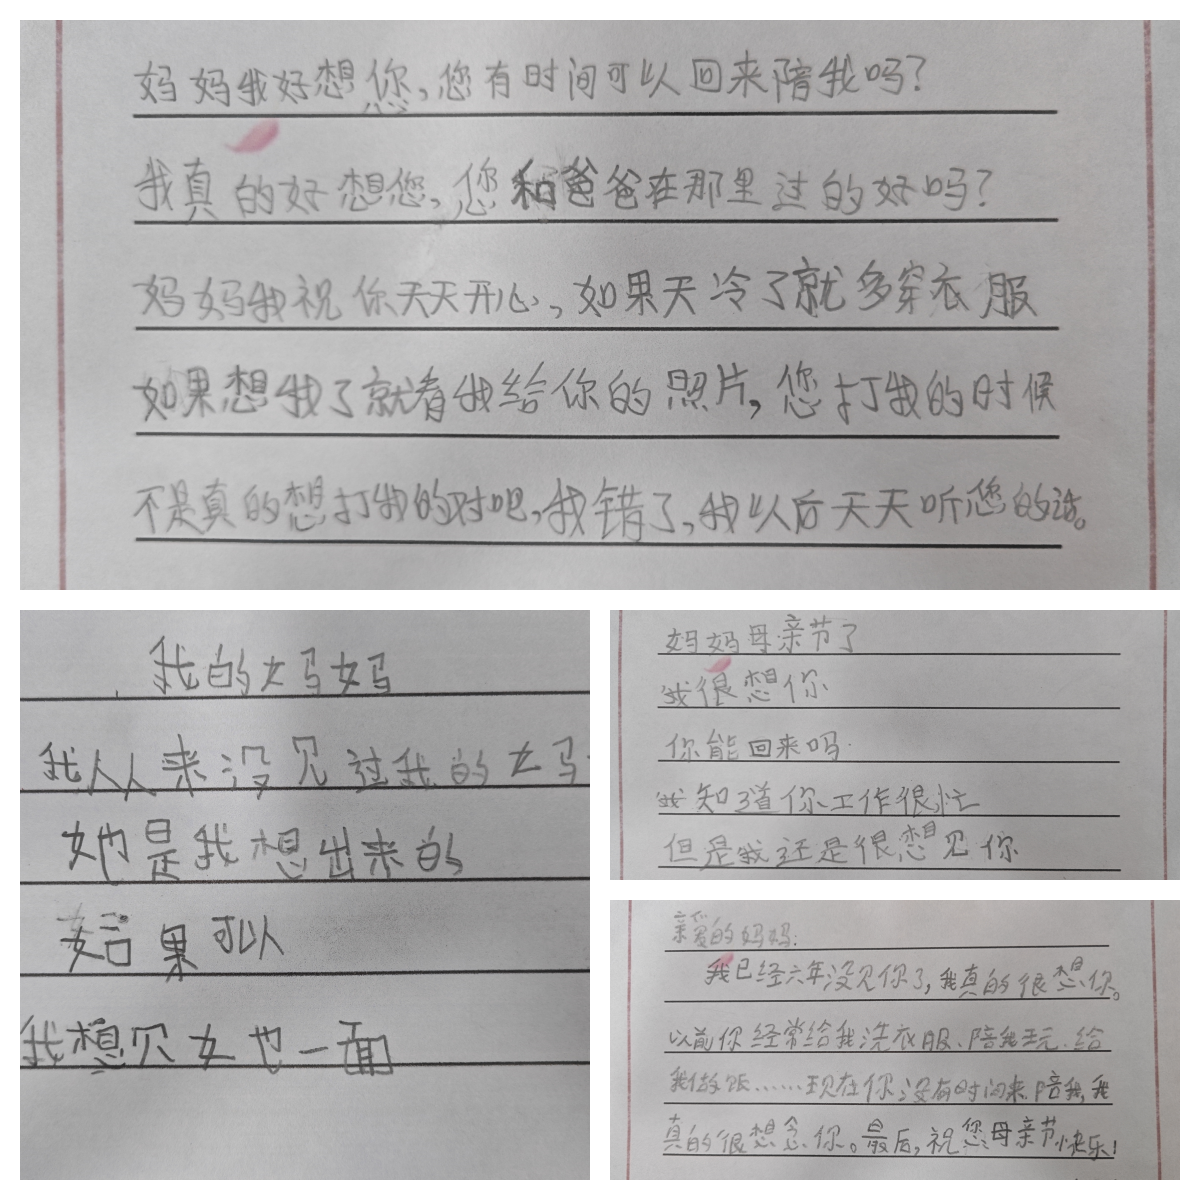 妈妈我好想您,您有时间可以回来陪我吗?
我真的好想您,您和爸爸在那里过的好吗?
妈妈我祝你天天开心,如果天冷了就多穿衣服
如果想我了就看我给你的照片,您打我的时候
不是真的想打我的对吧,我错了,我以后天天听您的话。
我的妈妈
我从来没见过我的妈
她是我想出来的
如果可以
我想见她一面
妈妈母亲节了
我很想你
你能回来吗
我知道你工作很忙
但是我还是很想见你
亲爱的妈妈:
我已经六年没见你了,我真的很想你。
以前你经常给我洗衣服、陪我玩、给
我做饭……现在你没有时间来陪我,我
真的很想念你。最后,祝您母亲节快乐!